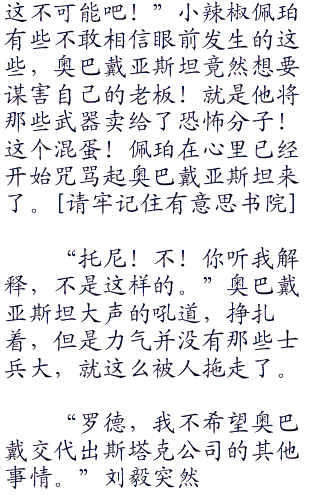 这不可能吧！”小辣椒佩珀
有些不敢相信眼前发生的这
些，奥巴戴亚斯坦竟然想要
谋害自己的老板！就是他将
那些武器卖给了恐怖分子！
这个混蛋！佩珀在心里已经
开始咒骂起奥巴戴亚斯坦来
了。[请牢记住有意思书院]
“托尼！不！你听我解
释，不是这样的。”奥巴戴
亚斯坦大声的吼道，挣扎
着，但是力气并没有那些士
兵大，就这么被人拖走了。
“罗德，我不希望奥巴
戴交代出斯塔克公司的其他
事情。”刘毅突然